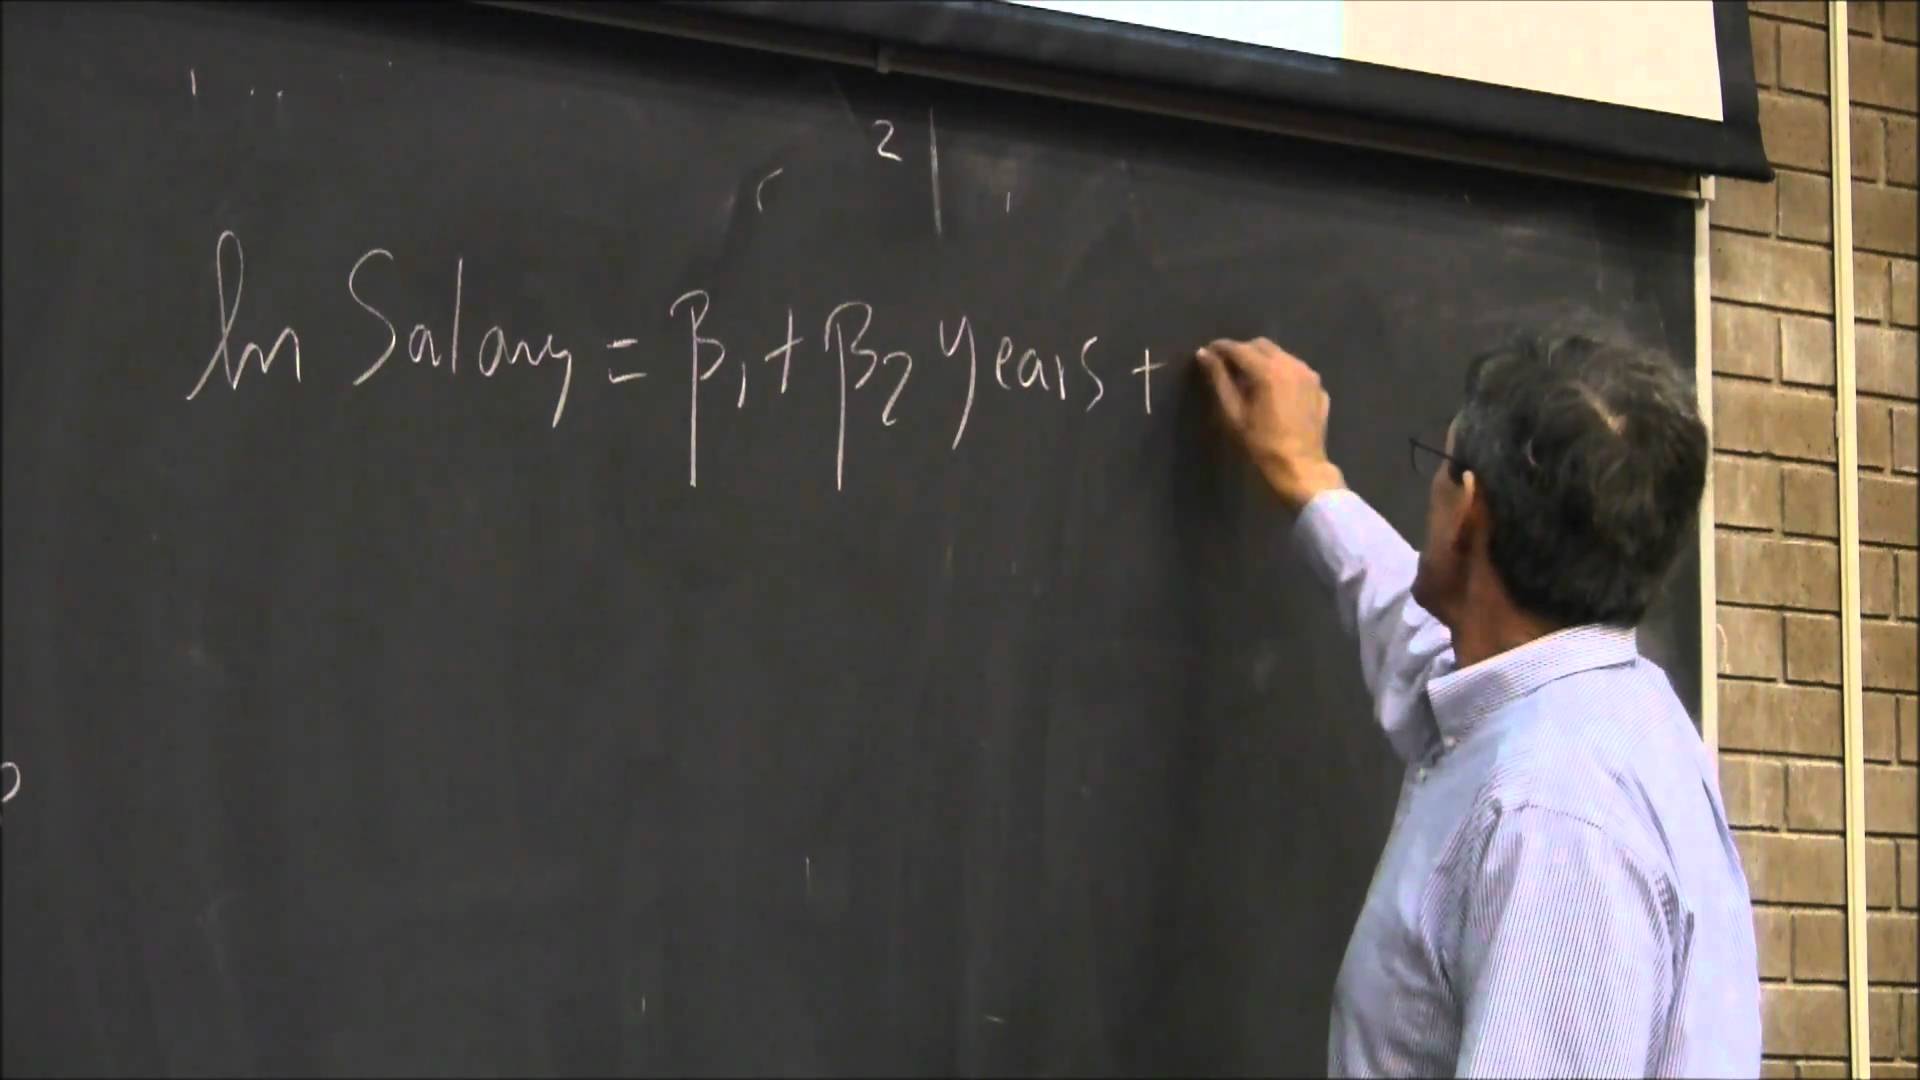 2
ln Salary = β₁ + β₂ years +